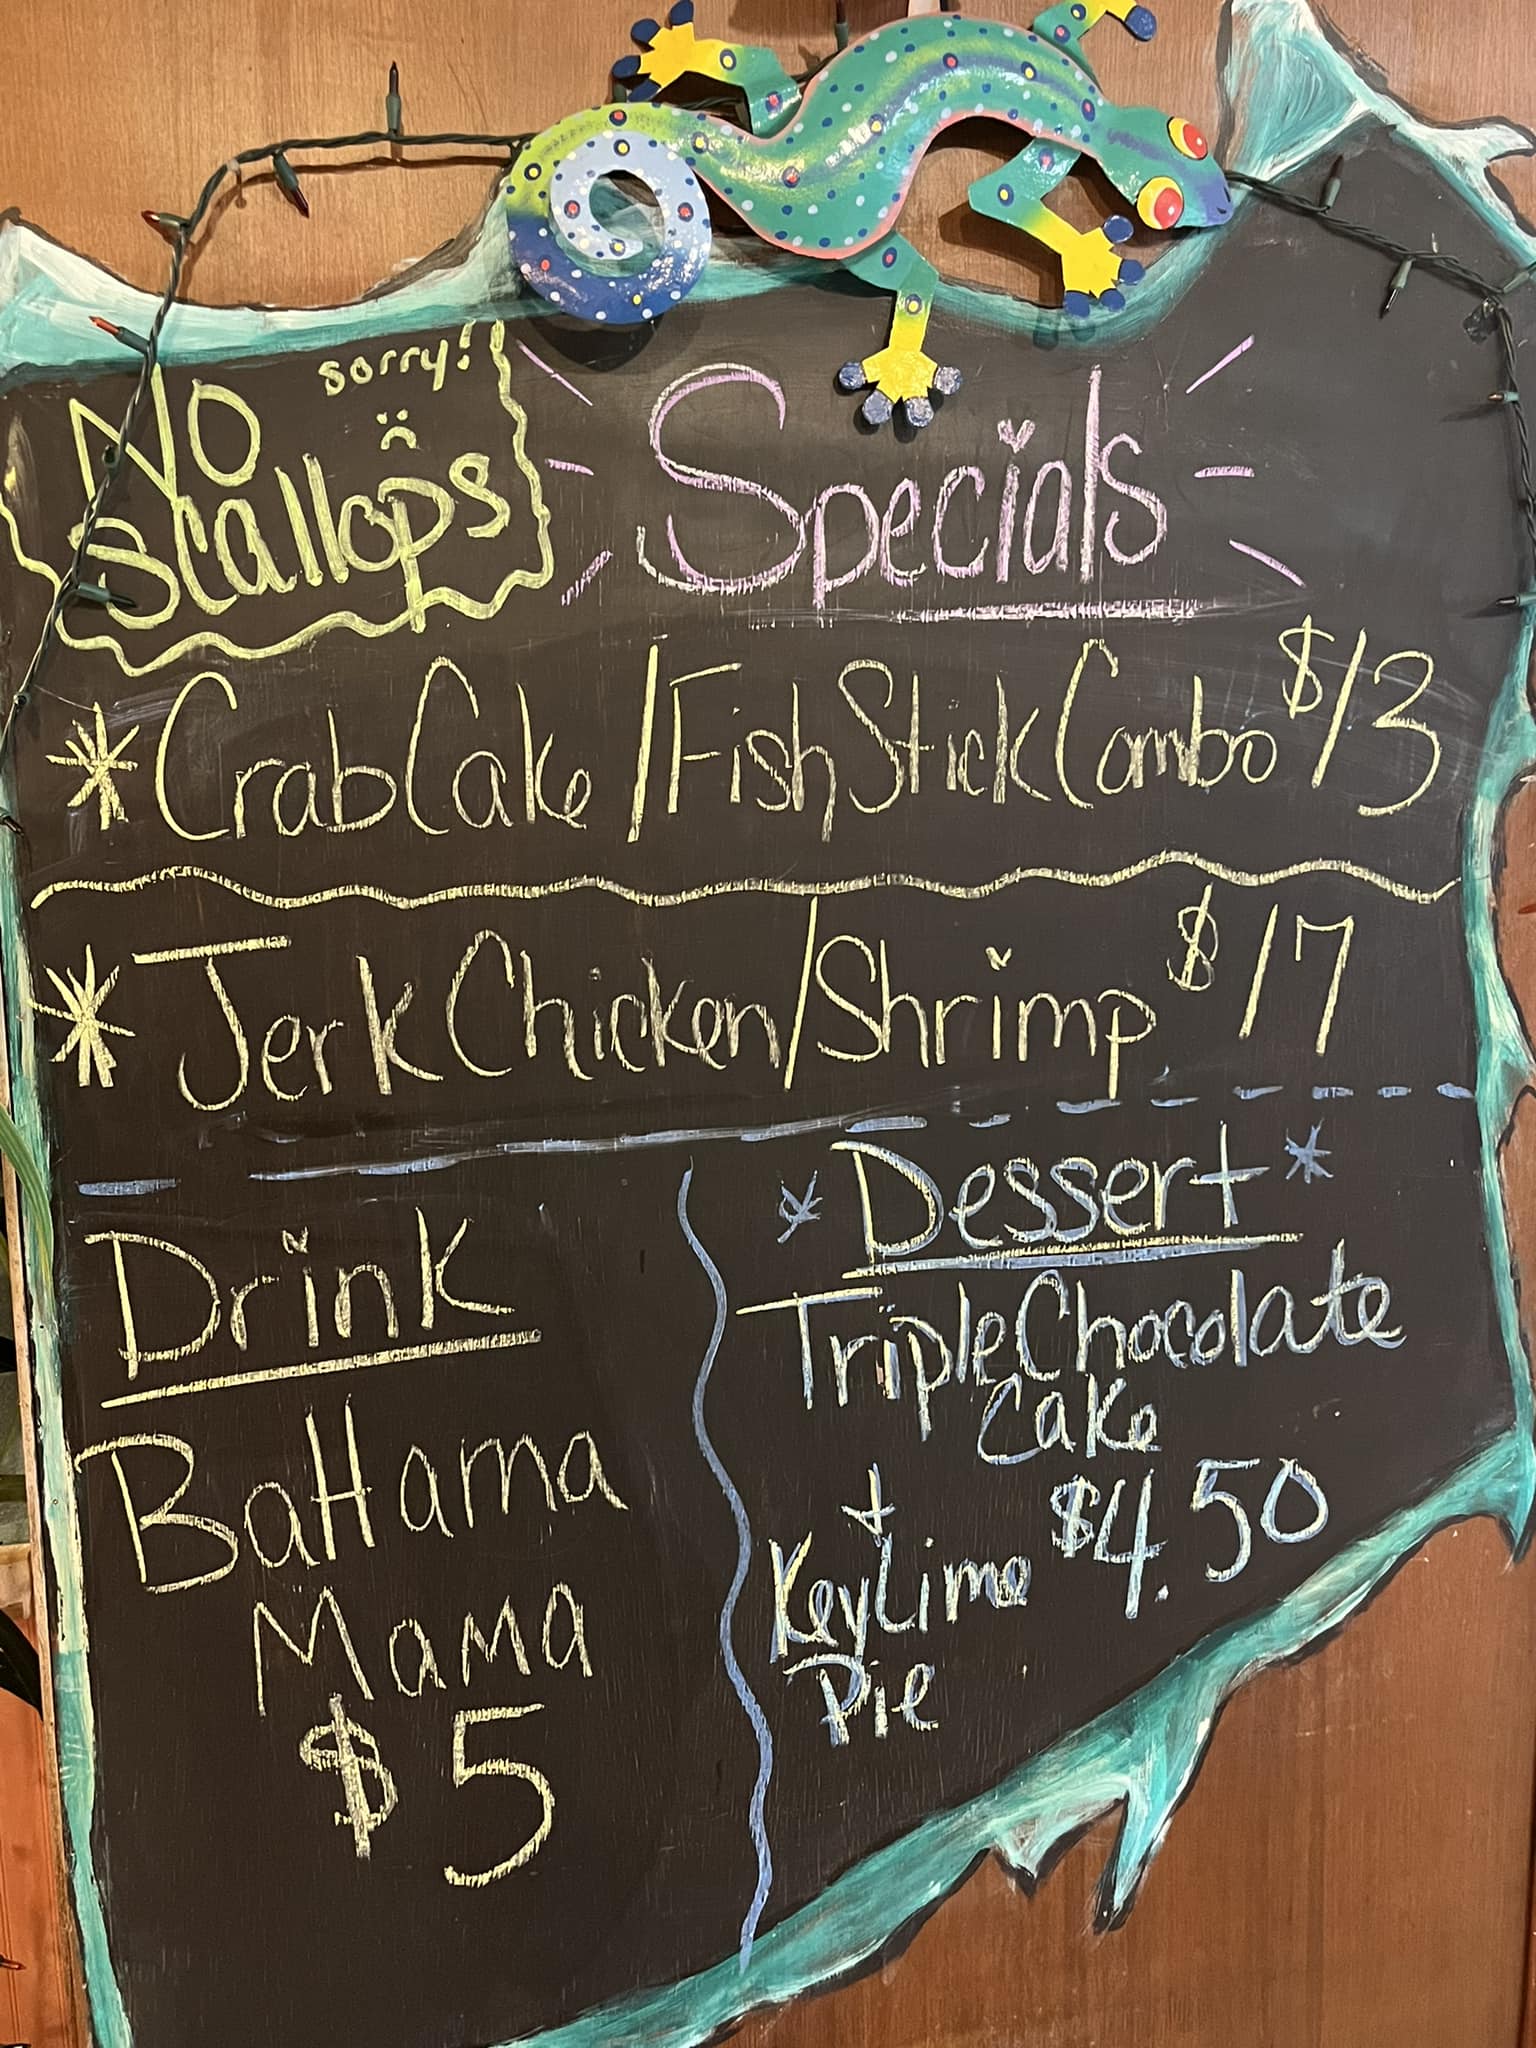 sorry!
NO
scallops
Specials
* Crab Cake / Fish Stick Combo $13
* Jerk Chicken / Shrimp $17
Drink
BaHama
Mama
$5
* Dessert *
Triple Chocolate
Cake
+ $4.50
Key Lime
Pie